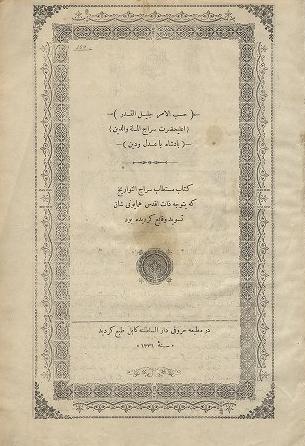 —( حسب الامر جلیل القدر )—
( اعلیحضرت سراج الملة والدین )
—( پادشاه با عدل ودین )—
کتاب مستطاب سراج التواریخ
که بتوجه ذات اقدس همایونی شان
تسوید وقایع کردیده بود
در مطبعه حروفی دار السلطنه کابل طبع کردید
« سنة ۱۳۳۱ »